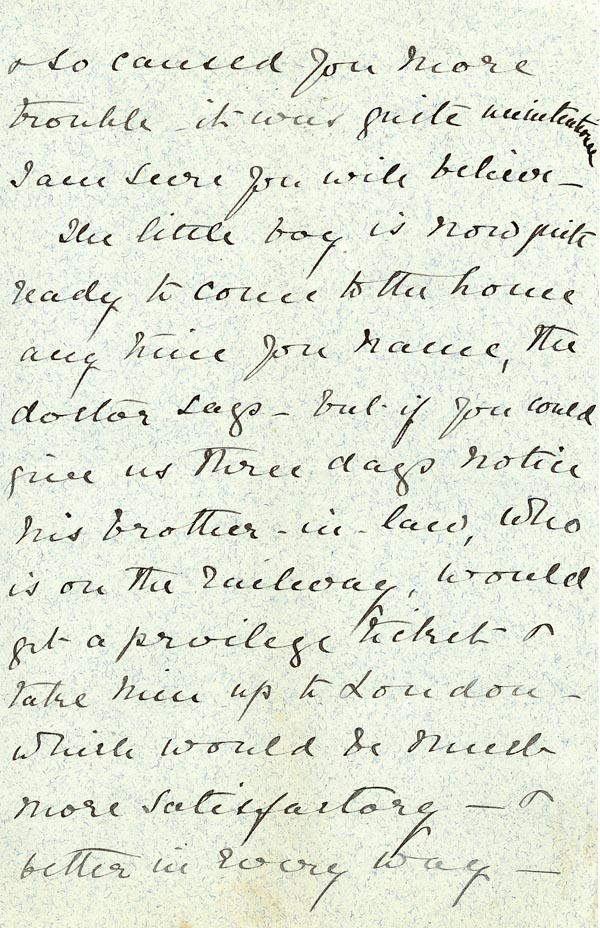 & so caused you more
trouble - it was quite unintentional
I am sure you will believe -
The little boy is now quite
ready to come to the home
any time you name, the
doctor says - but if you could
give us three days notice
his brother-in-law, who
is on the railway, would
get a privilege ticket &
take him up to London -
which would be much
more satisfactory - &
better in every way -